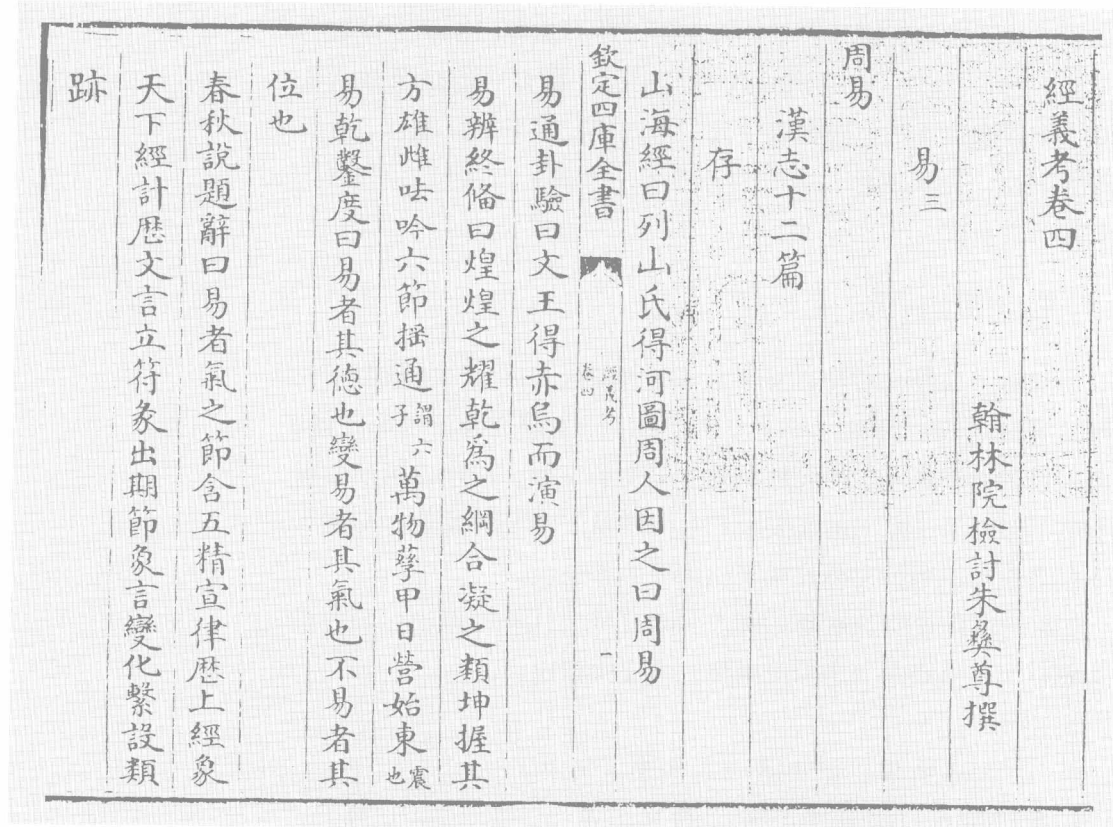 經義考卷四
翰林院檢討朱彝尊撰
易三
周易
漢志十二篇
存
山海經曰列山氏得河圖周人因之曰周易
欽定四庫全書
經義考
卷四
一
易通卦驗曰文王得赤烏而演易
易辨終備曰煌煌之耀乾爲之綱合凝之類坤握其
方雄雌呿吟六節揺通謂六子萬物孳甲日營始東震也
易乾鑿度曰易者其徳也變易者其氣也不易者其
位也
春秋說題辭曰易者氣之節含五精宣律厯上經象
天下經計厯文言立符象出期節彖言變化繫設類
跡